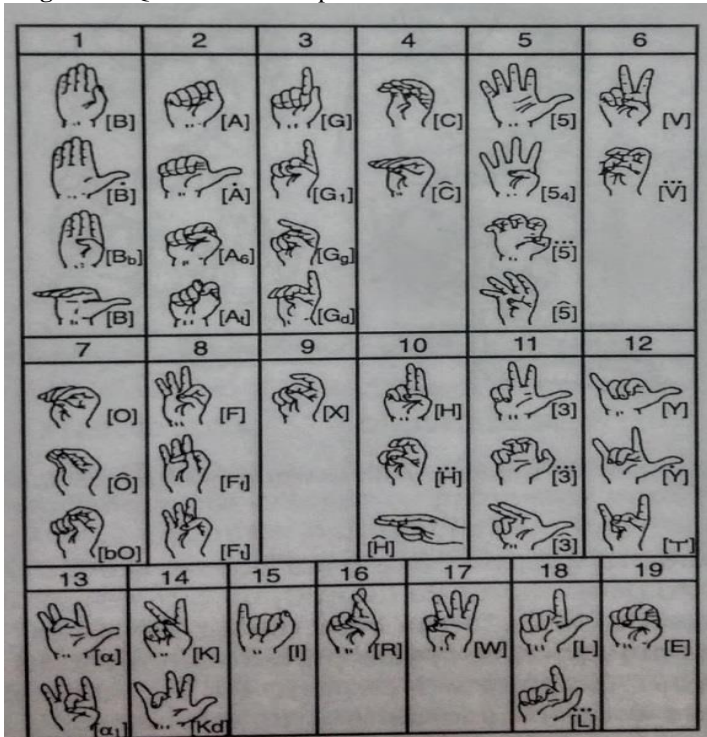 1 2 3 4 5 6
[B] [A] [G] [C] [5] [V]
[Ḃ] [Ȧ] [G₁] [Ĉ] [5₄] [V⃛]
[Bb] [A6] [Gg] [5⃛]
[B] [At] [Gd] [5̂]
7 8 9 10 11 12
[O] [F] [X] [H] [3] [Y]
[Ô] [Ft] [Ḧ] [3⃛] [Ÿ]
[bO] [Ft] [Ĥ] [3̂] ["I"]
13 14 15 16 17 18 19
[α] [K] [I] [R] [W] [L] [E]
[α₁] [Kd] [L⃛]